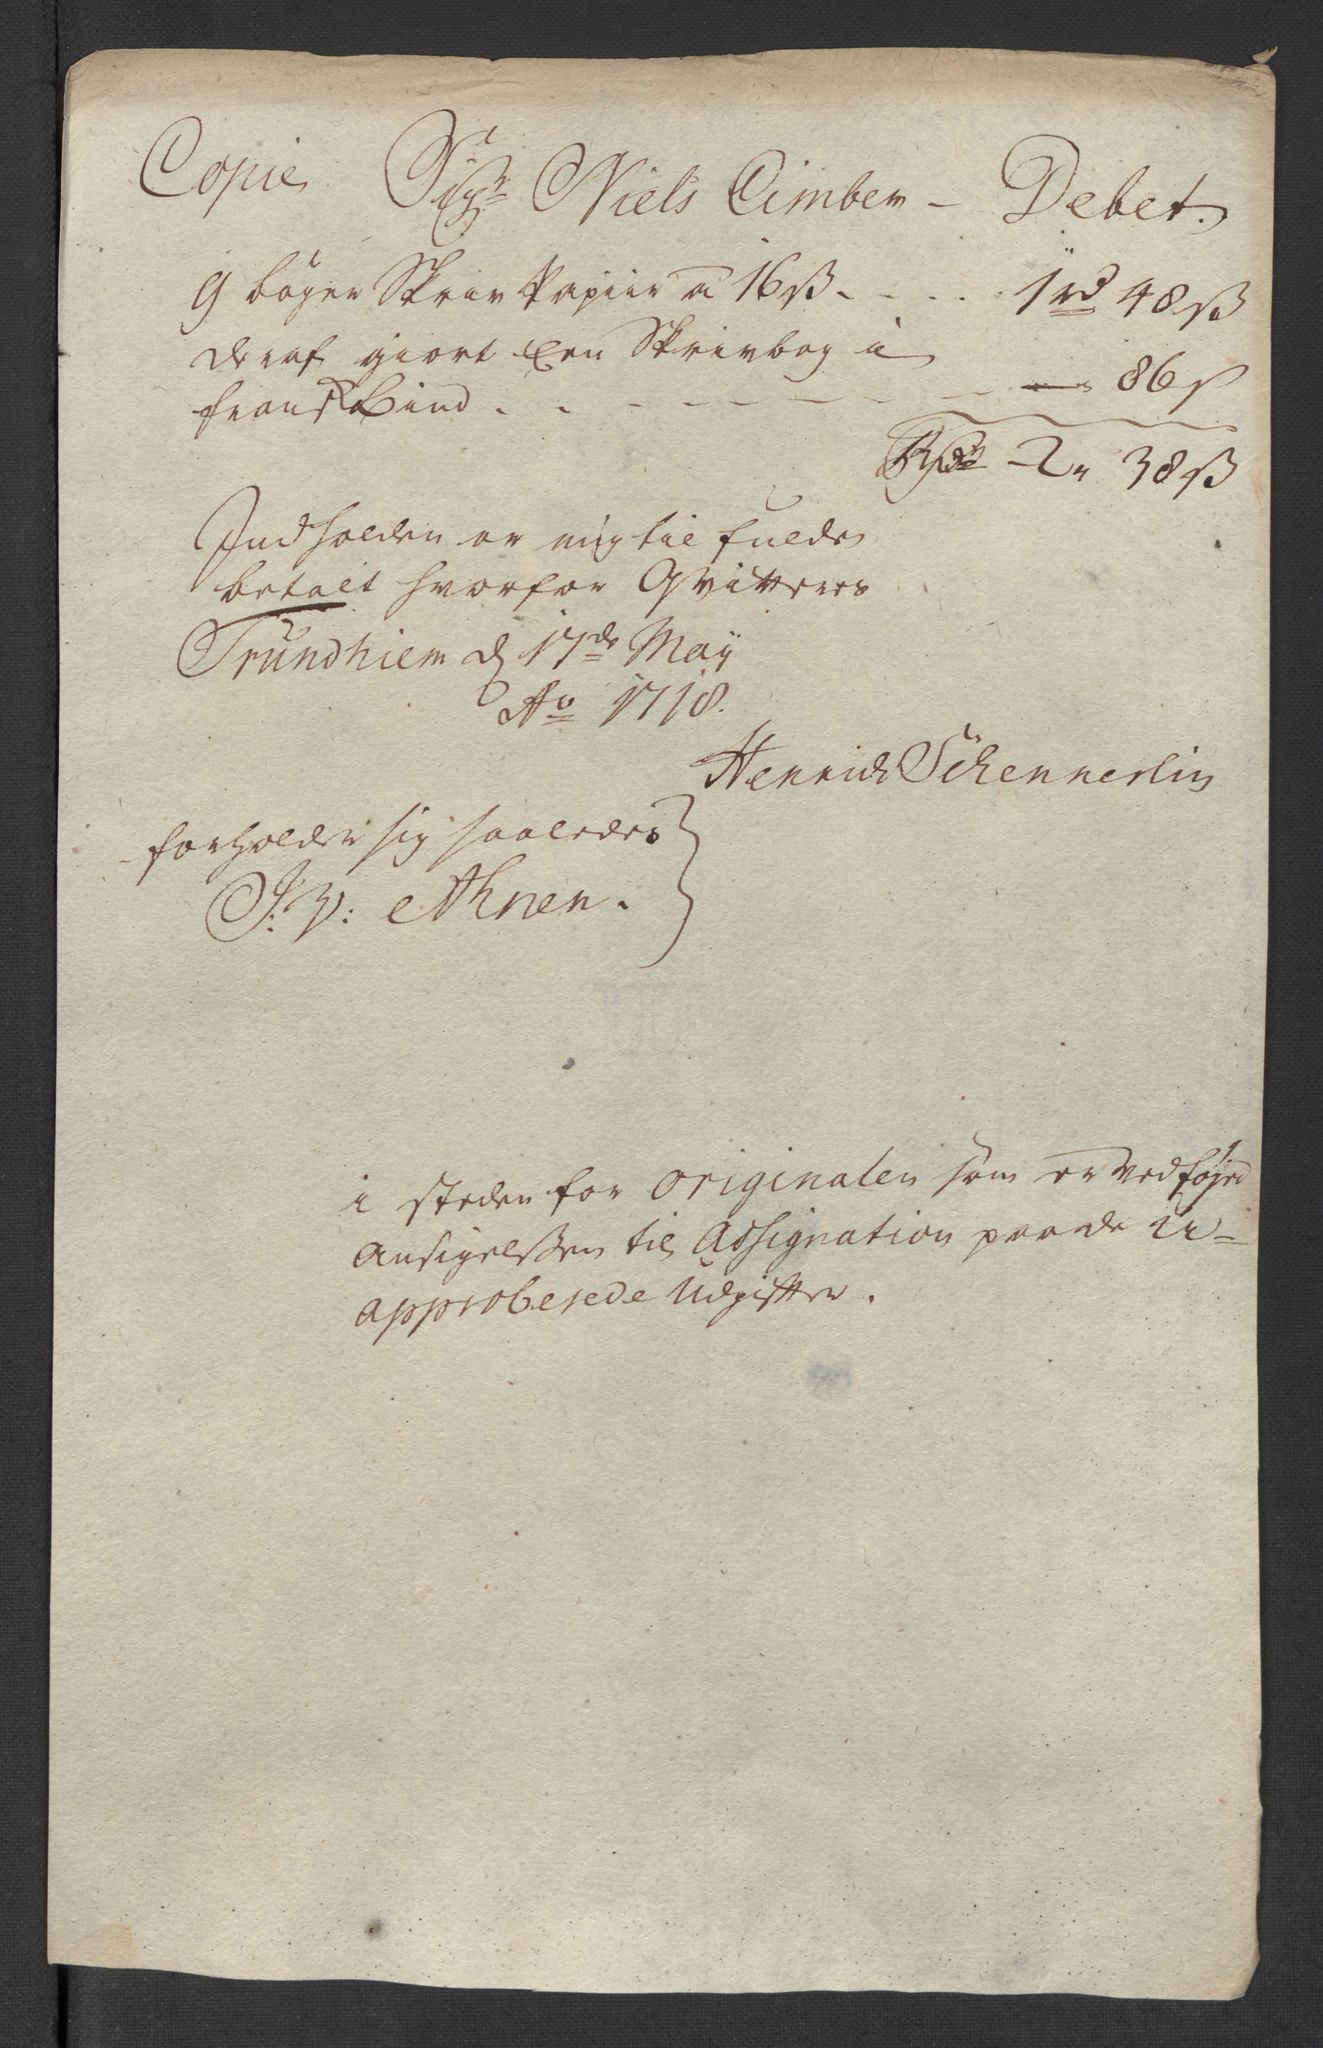 Copie Sigr Niels Cimber - Debet.
9 bøger Skriv Papiir a 16 ß. - - . 1 rd 48 ß
deraf giort Een Skrivbog i
fransk Bind . - - - - - - - — 86 ß
Rdr 2 „ 38 ß
Indholden er mig til fulde
betalt hvorfor Qvitterer
Trundhiem d 17de Maÿ
Ao 1718.
Henrich Schennerlin
forholder sig saaledes
J: V: Ahnen.
i steden for originalen som er vedføjed
ansigelßen til Assignation paa de u-
approberede Udgifter.